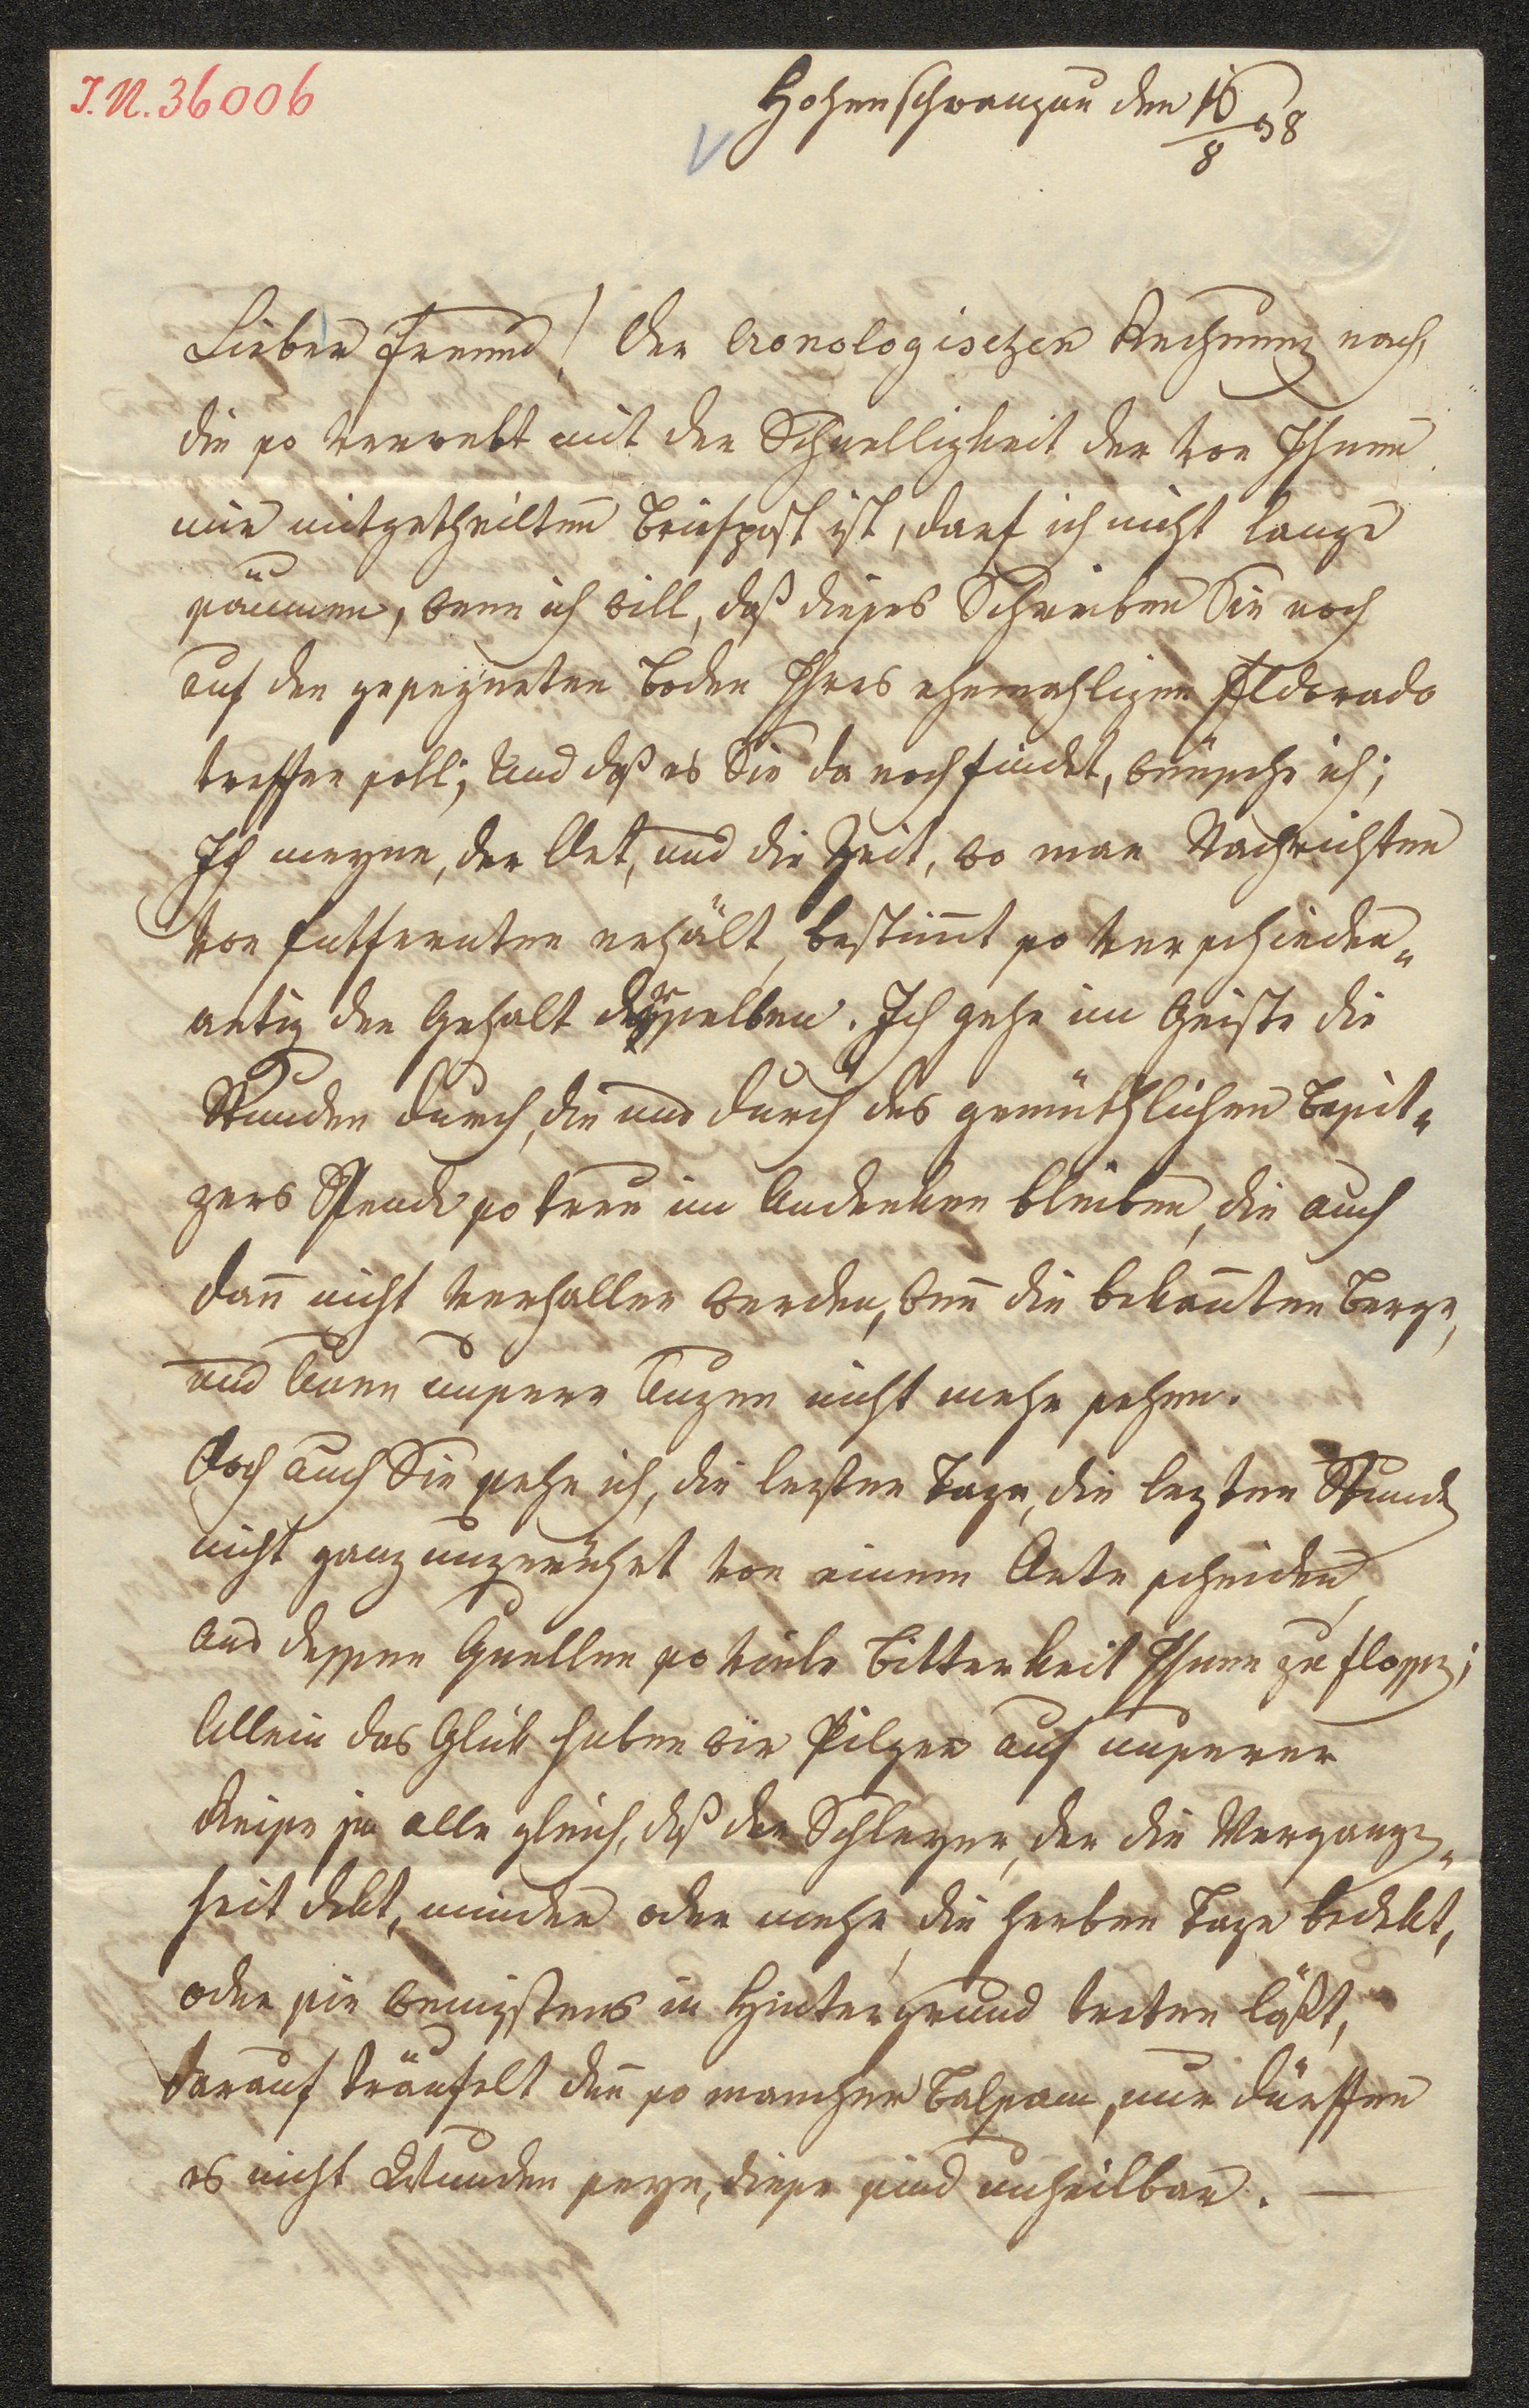 I.N. 36006
Hohenschwangau den 16/8 38
Lieber Freund! Der Cronologischen Rechnung nach,
die so verwebt mit der Schnelligkeit der von Ihnen
mir mitgetheilten Briefpost ist, darf ich nicht lange
säumen, wenn ich will, daß dieses Schreiben Sie noch
auf den geseegneten Boden Ihres ehemahligen Eldorado
treffen soll; Und daß es Sie da noch findet, wünsche ich;
Ich meyne, der Ort, und die Zeit, wo man Nachrichten
von Entfernten erhält, bestimt so verschieden„
artig den Gehalt derselben. Ich gehe im Geiste die
Stunden durch, die uns durch des gemüthlichen Besit„
zers Spende so treu im Andenken bleiben, die auch
dan nicht verhallen werden, wen die bekanten Berge,
und Auen unsere Augen nicht mehr sehen.
Doch auch Sie sehe ich, die lezten Tage, die lezten Stunden
nicht ganz ungerührt von einem Orte scheiden,
aus dessen Quellen so viele Bitterkeit Ihnen zu flossen;
Allein das Glük haben wir Pilger auf unserer
Reise ja alle gleich, daß der Schleyer, der die Vergangen„
heit dekt, minder oder mehr, die herben Tage bedekt,
oder sie wenigstens in Hintergrund tretten läßt,
darauf träufelt den so mancher Balsam, nur dürffen
es nicht Wunden seyn, diese sind unheilbar. —